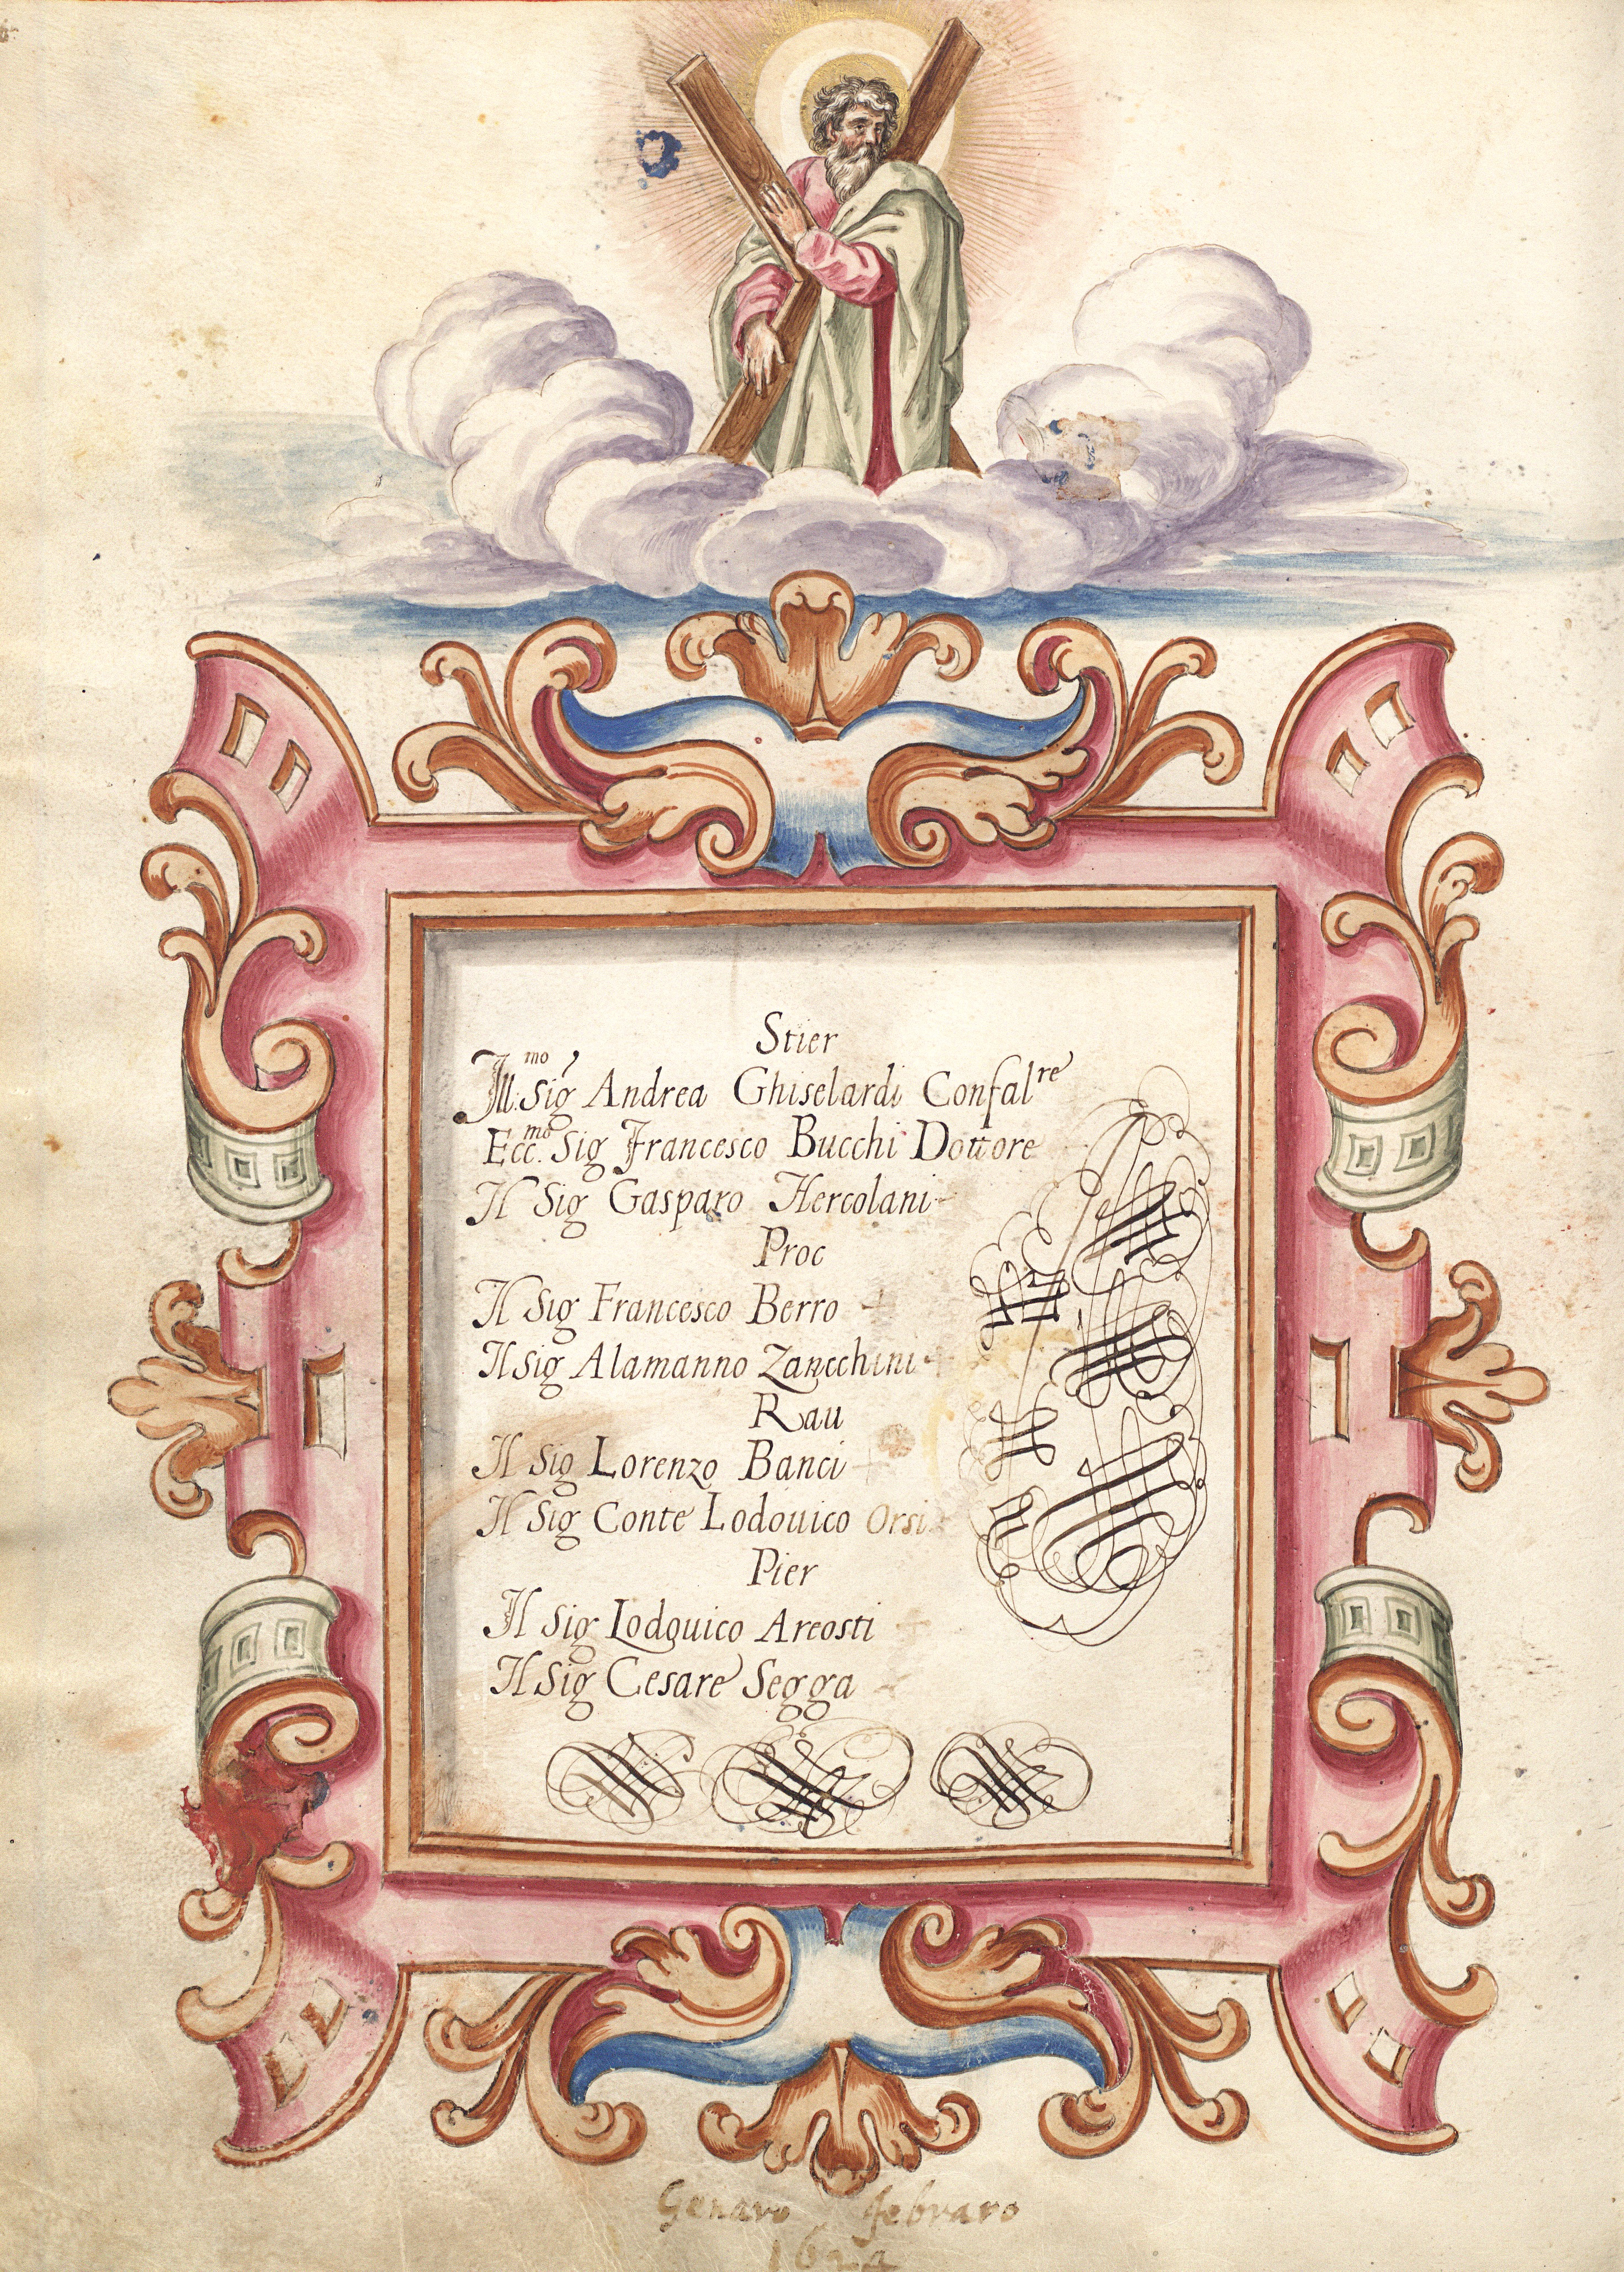 Stier
Ill:mo Sig Andrea Ghiselardi Confalre
Ecc.mo Sig Francesco Bucchi Dottore
Il Sig Gasparo Hercolani
Proc
Il Sig Francesco Berro
Il Sig Alamanno Zanechini
Rau
Il Sig Lorenzo Banci
Il Sig Conte Lodouico Orsi
Pier
Il Sig Lodouico Areosti
Il Sig Cesare Segga
Genaro febraro